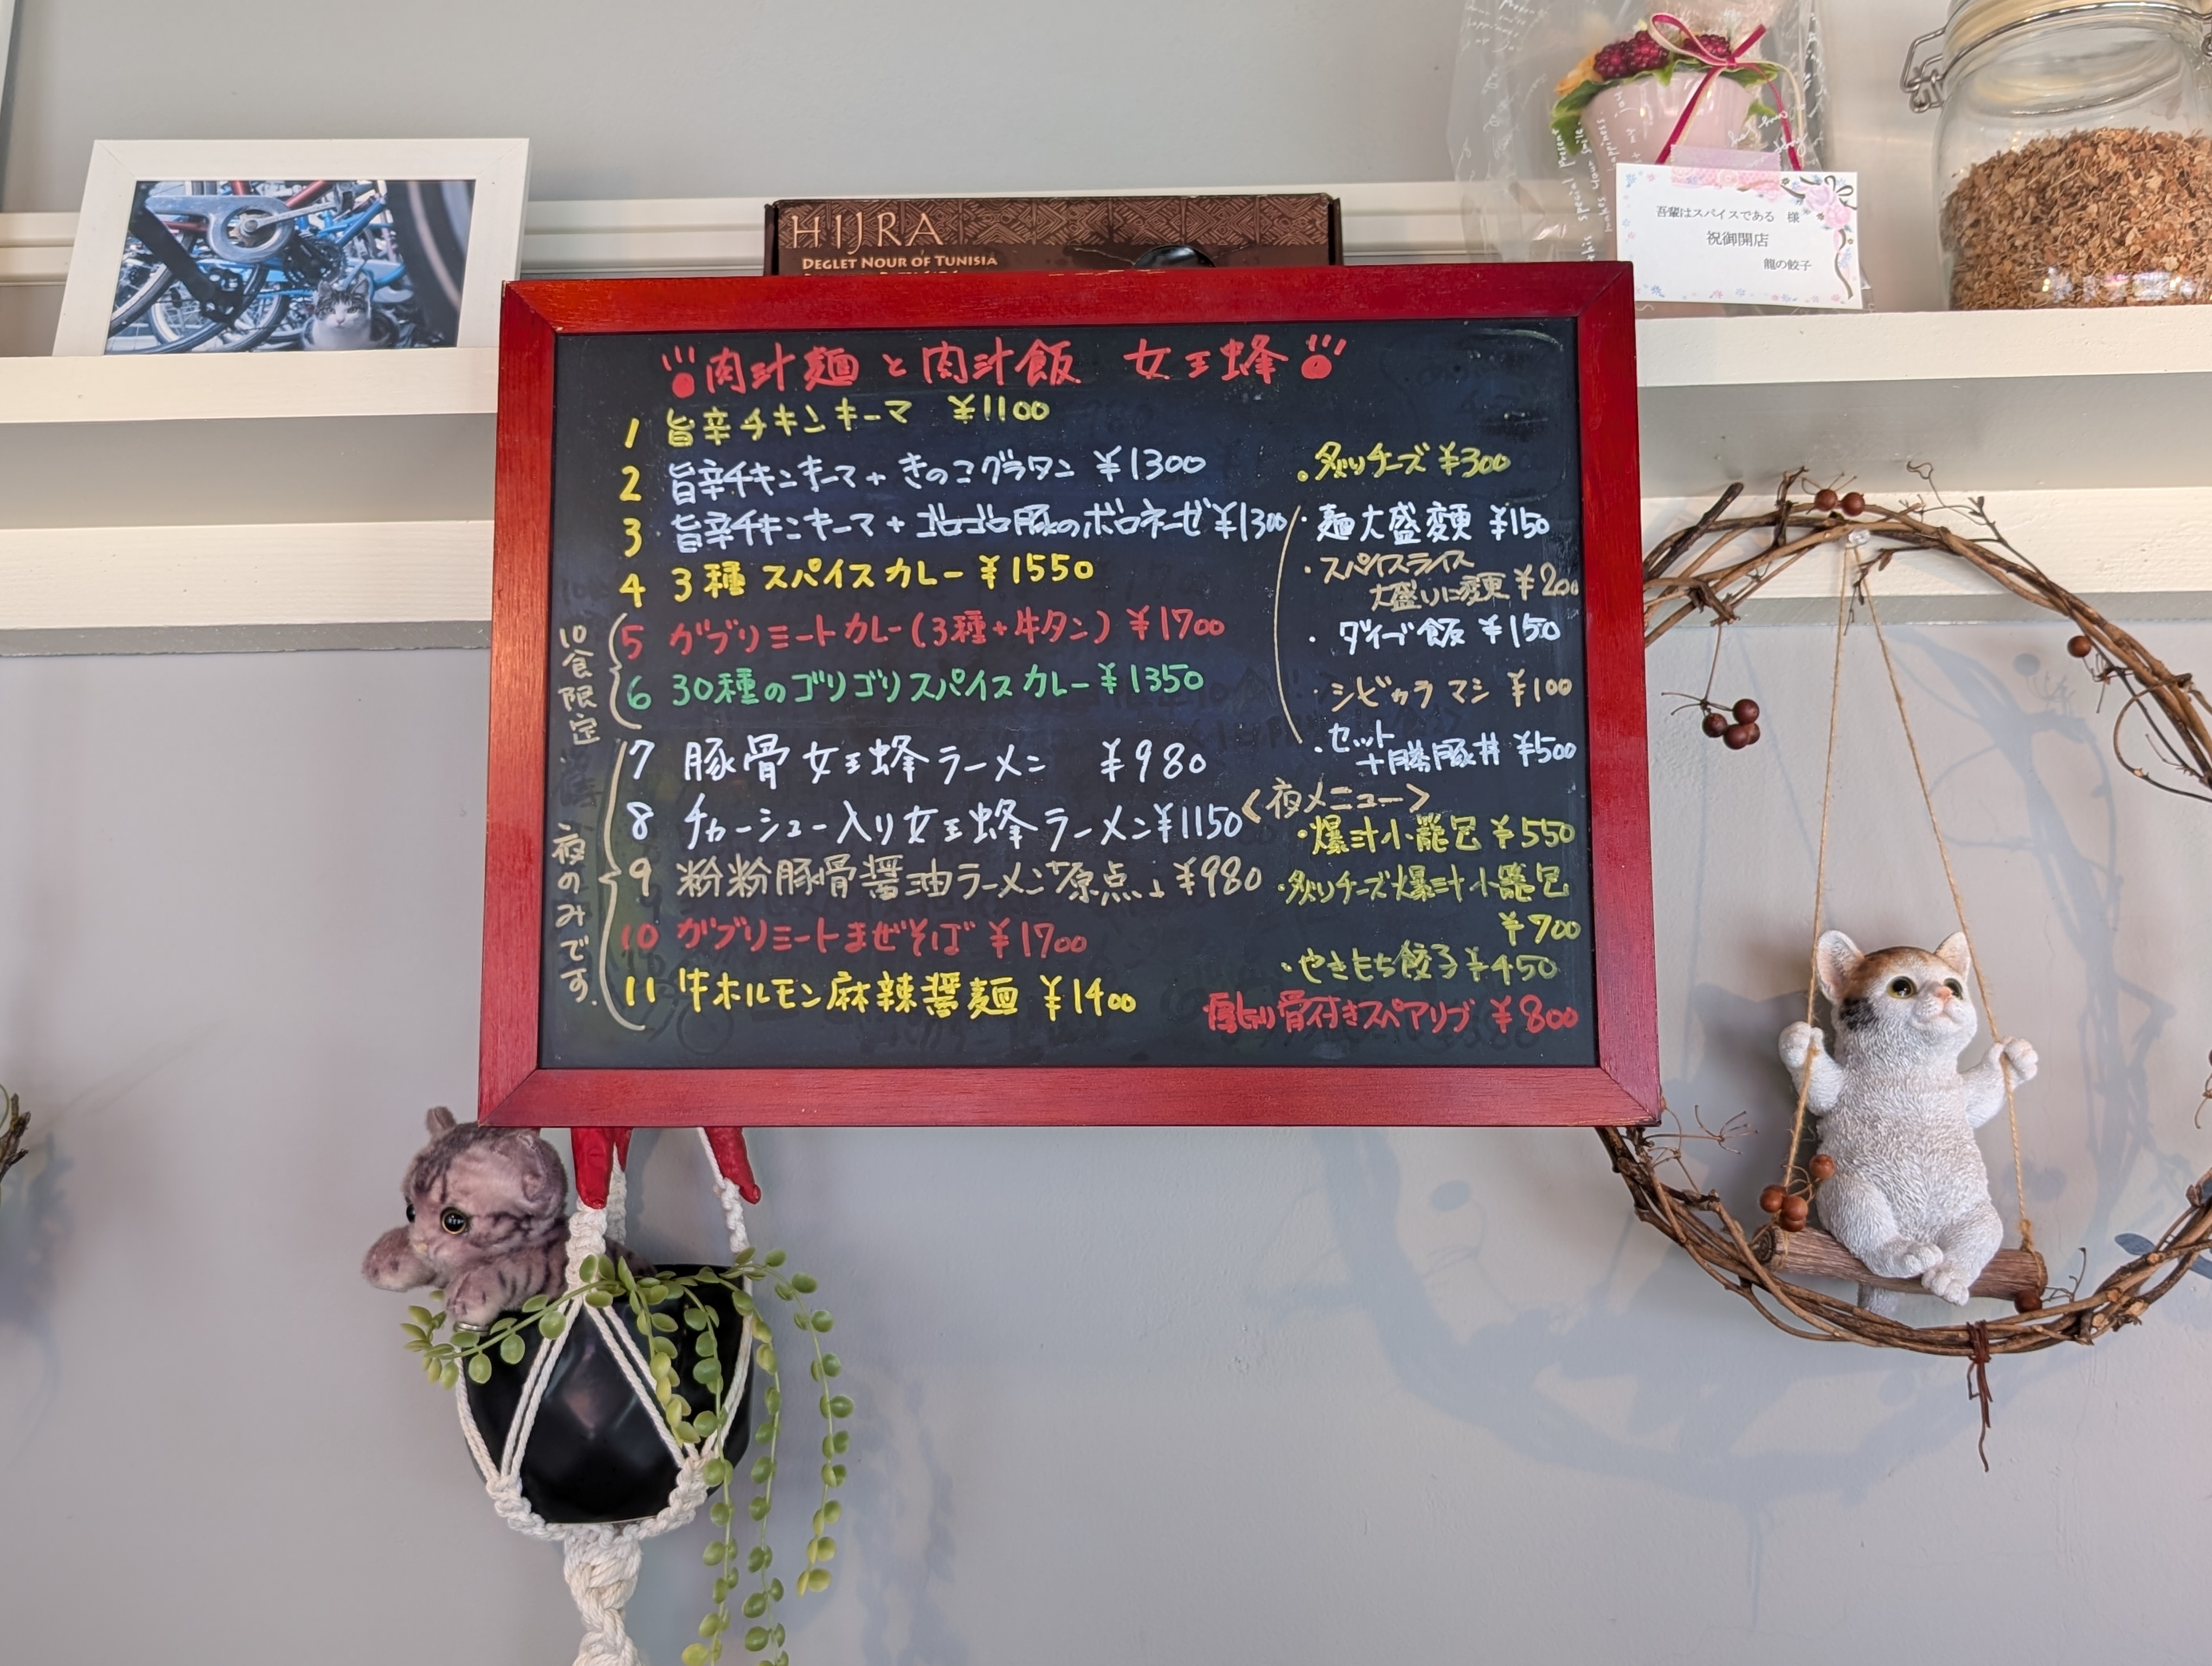 HIJRA
DEGLET NOUR OF TUNISIA
吾輩はスパイスである 様
祝御開店
龍の餃子
肉汁麺と肉汁飯 女王蜂
1 旨辛チキンキーマ ¥1100
2 旨辛チキンキーマ+きのこグラタン ¥1300
3 旨辛チキンキーマ+ゴロゴロ豚のボロネーゼ ¥1300
4 3種スパイスカレー ¥1550
10食限定
5 ガブリミートカレー(3種+牛タン) ¥1700
6 30種のゴリゴリスパイスカレー ¥1350
夜のみです.
7 豚骨女王蜂ラーメン ¥980
8 チャーシュー入り女王蜂ラーメン ¥1150
9 粉粉豚骨醤油ラーメン「原点」 ¥980
10 ガブリミートまぜそば ¥1700
11 牛ホルモン麻辣醤麺 ¥1400
・炙りチーズ ¥300
・麺大盛変更 ¥150
・スパイスライス
大盛りに変更 ¥200
・ダイブ飯 ¥150
・シビカラマシ ¥100
・セット
十勝豚丼 ¥500
<夜メニュー>
・爆汁小籠包 ¥550
・炙りチーズ爆汁小籠包
¥700
・やきもち餃子 ¥450
厚切り骨付きスペアリブ ¥800